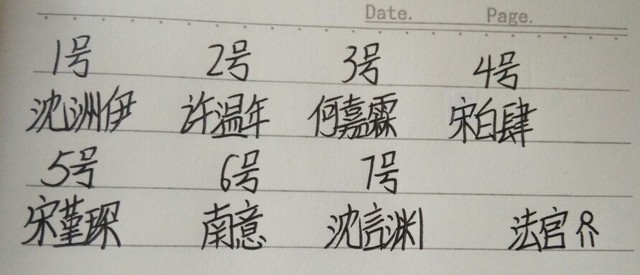 Date. Page.
1号 2号 3号 4号
沈洲伊 许温年 何嘉霖 宋白肆
5号 6号 7号
宋堇琛 南意 沈言渊 法官